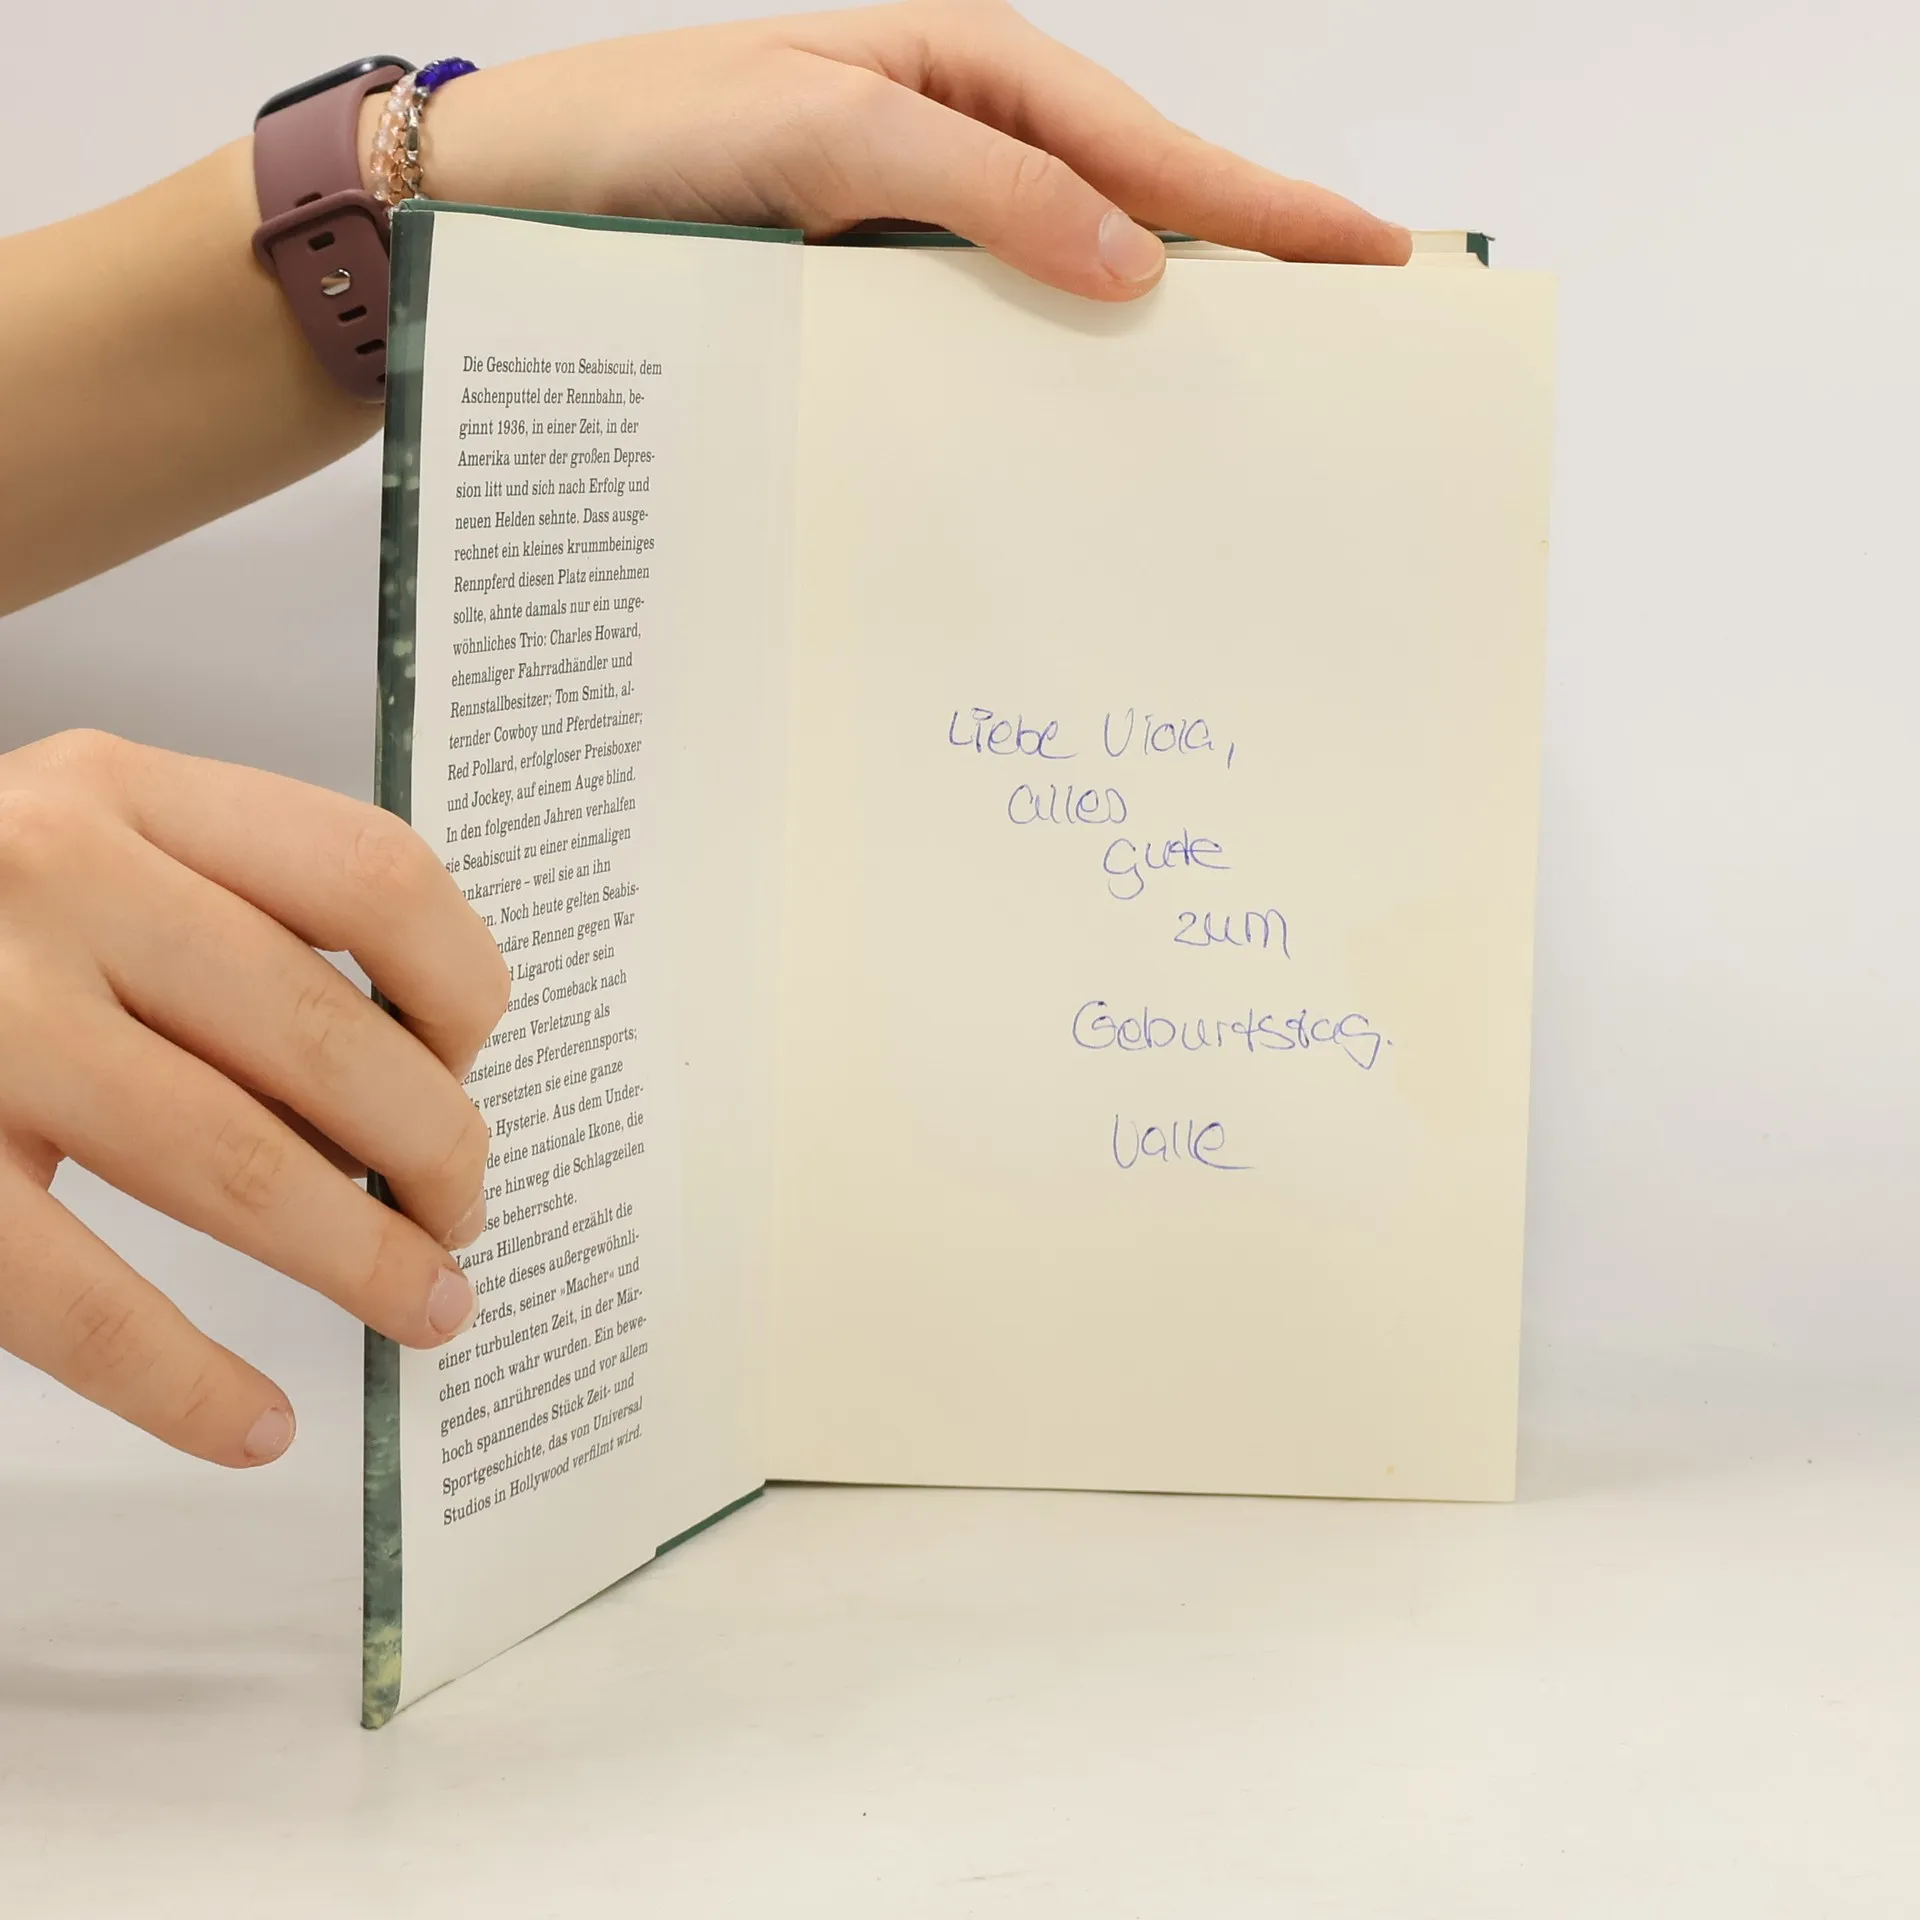 Die Geschichte von Seabiscuit, dem
Aschenputtel der Rennbahn, be-
ginnt 1936, in einer Zeit, in der
Amerika unter der großen Depres-
sion litt und sich nach Erfolg und
neuen Helden sehnte. Dass ausge-
rechnet ein kleines krummbeiniges
Rennpferd diesen Platz einnehmen
sollte, ahnte damals nur ein unge-
wöhnliches Trio: Charles Howard,
ehemaliger Fahrradhändler und
Rennstallbesitzer; Tom Smith, al-
ternder Cowboy und Pferdetrainer;
Red Pollard, erfolgloser Preisboxer
und Jockey, auf einem Auge blind.
In den folgenden Jahren verhalfen
sie Seabiscuit zu einer einmaligen
nkarriere – weil sie an ihn
en. Noch heute gelten Seabis-
ndäre Rennen gegen War
d Ligaroti oder sein
endes Comeback nach
weren Verletzung als
ensteine des Pferderennsports;
s versetzten sie eine ganze
n Hysterie. Aus dem Under-
de eine nationale Ikone, die
hre hinweg die Schlagzeilen
sse beherrschte.
Laura Hillenbrand erzählt die
ichte dieses außergewöhnli-
Pferds, seiner »Macher« und
einer turbulenten Zeit, in der Mär-
chen noch wahr wurden. Ein bewe-
gendes, anrührendes und vor allem
hoch spannendes Stück Zeit- und
Sportgeschichte, das von Universal
Studios in Hollywood verfilmt wird.
Liebe Viola,
alles
gute
zum
Geburtstag.
Valle